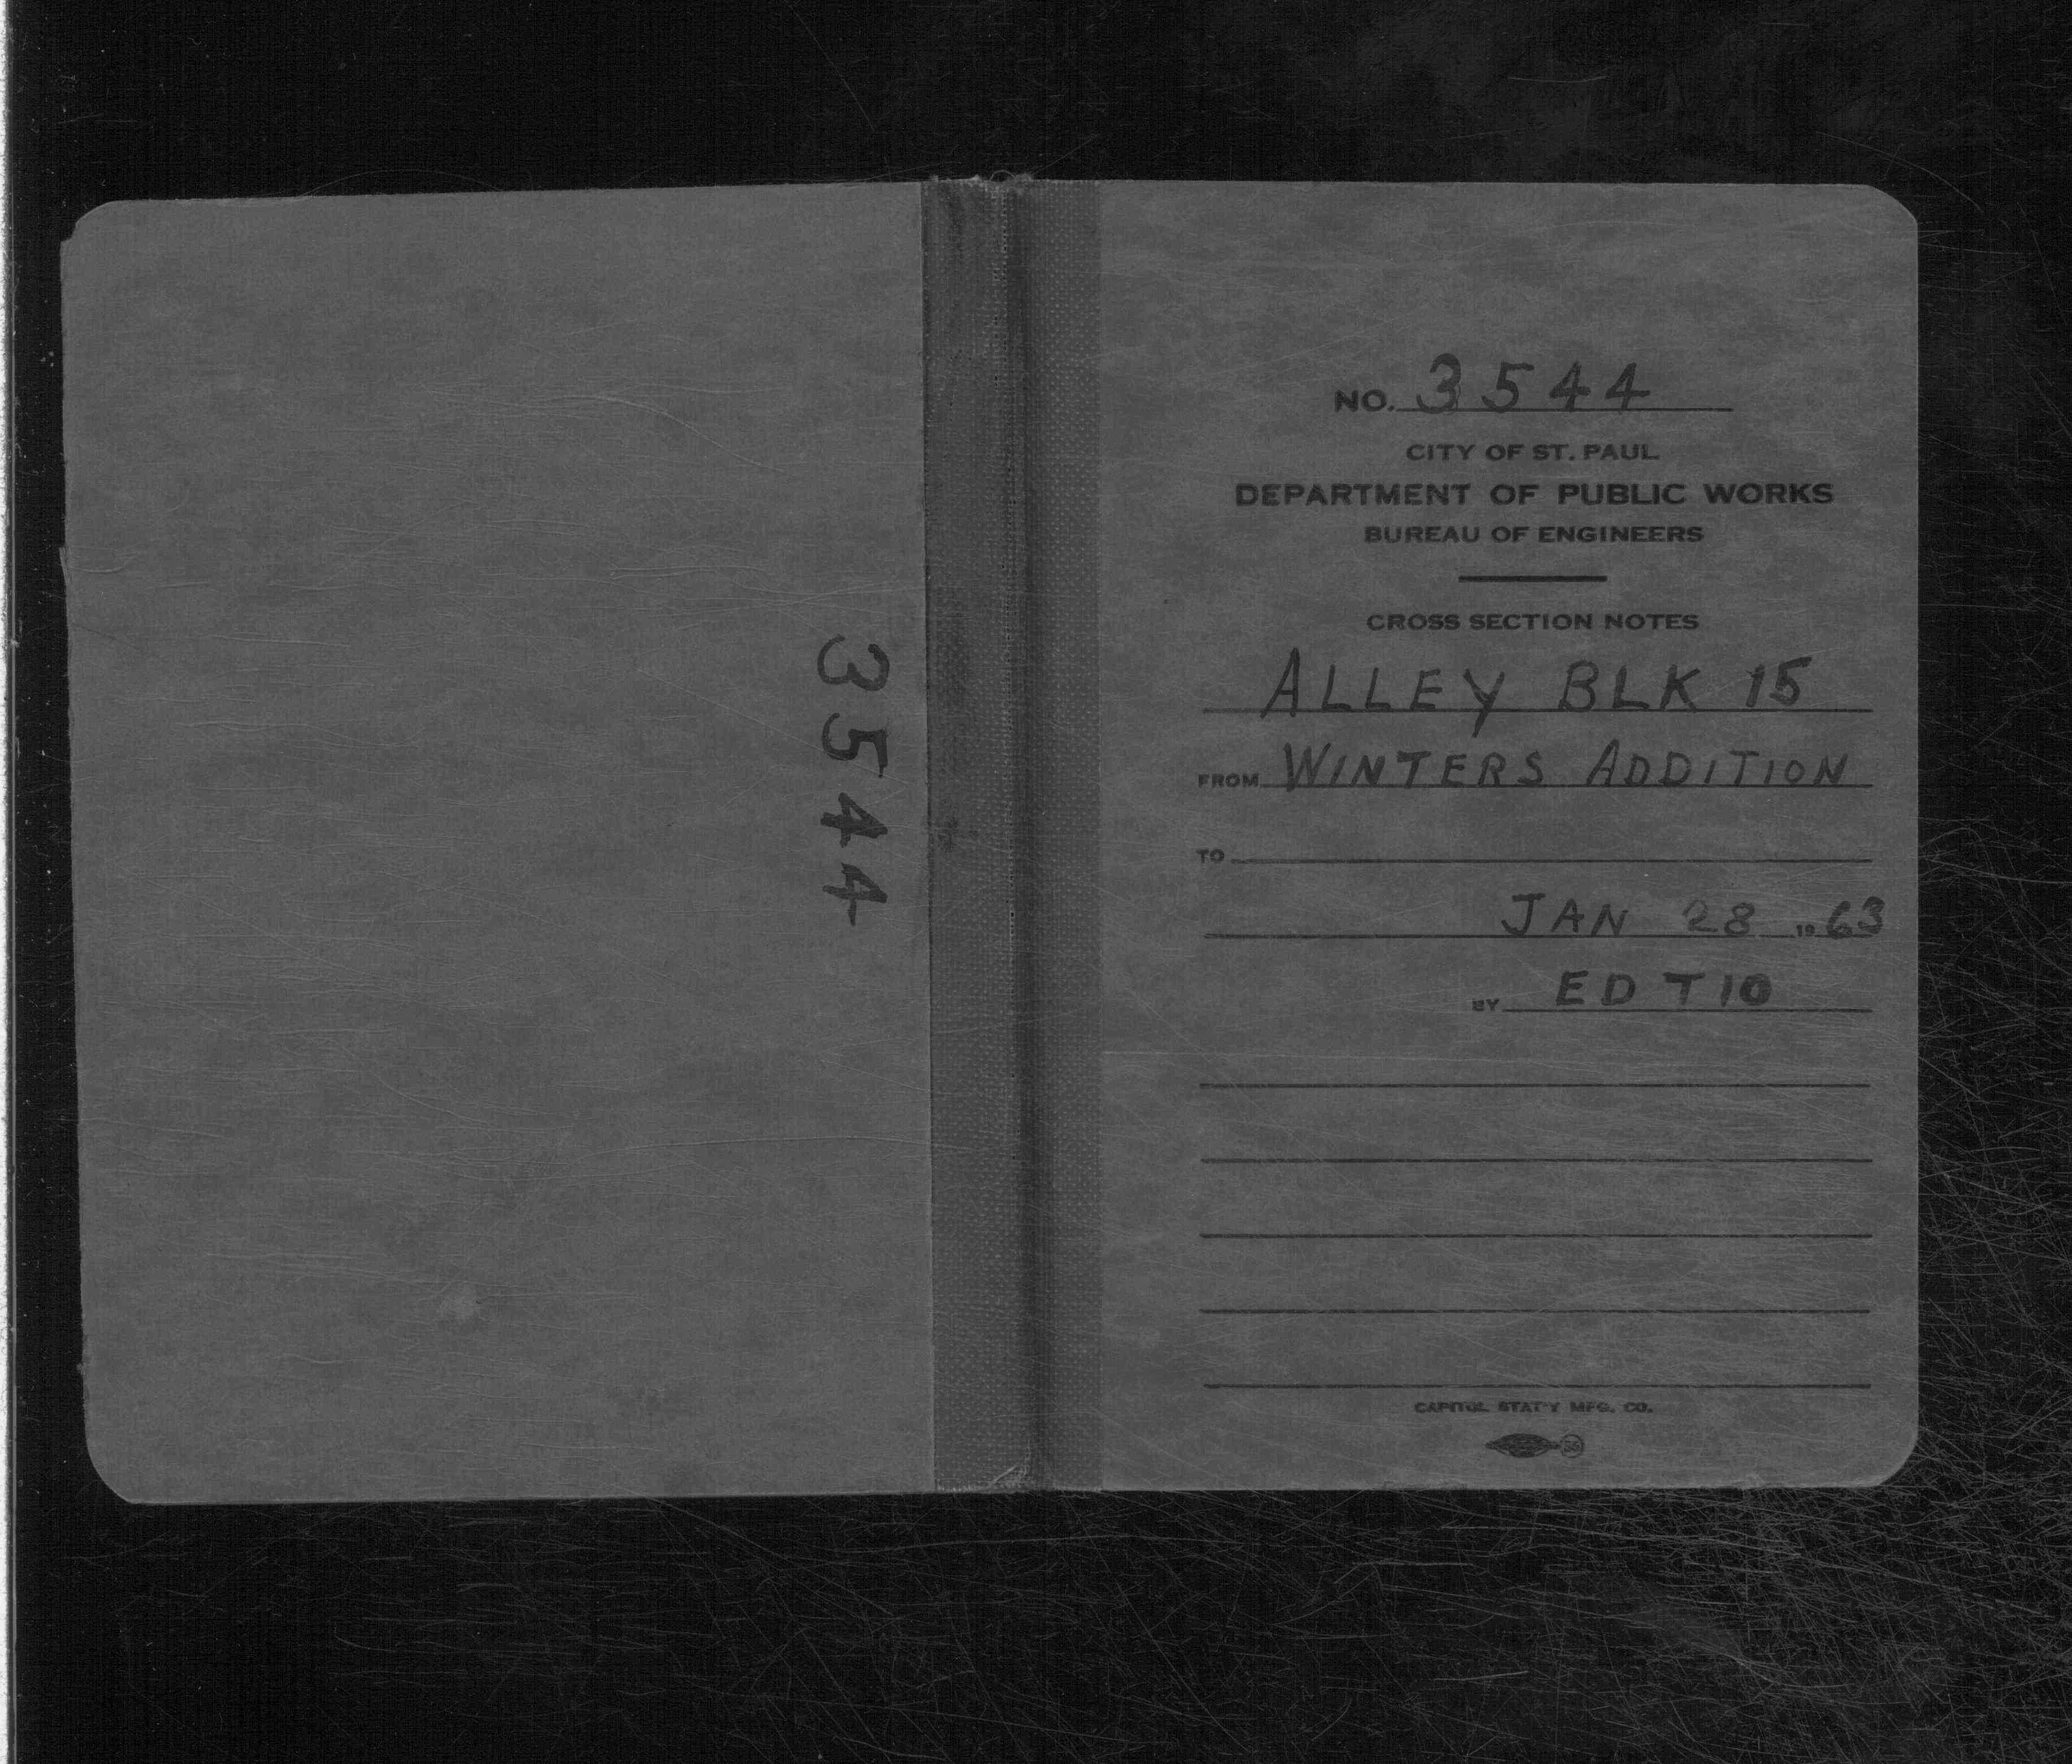 3544
NO. 3544
CITY OF ST. PAUL
DEPARTMENT OF PUBLIC WORKS
BUREAU OF ENGINEERS
CROSS SECTION NOTES
ALLEY BLK 15
FROM WINTERS ADDITION
TO
JAN 28 1963
BY ED TIO
CAPITOL STAT'Y MFG. CO.